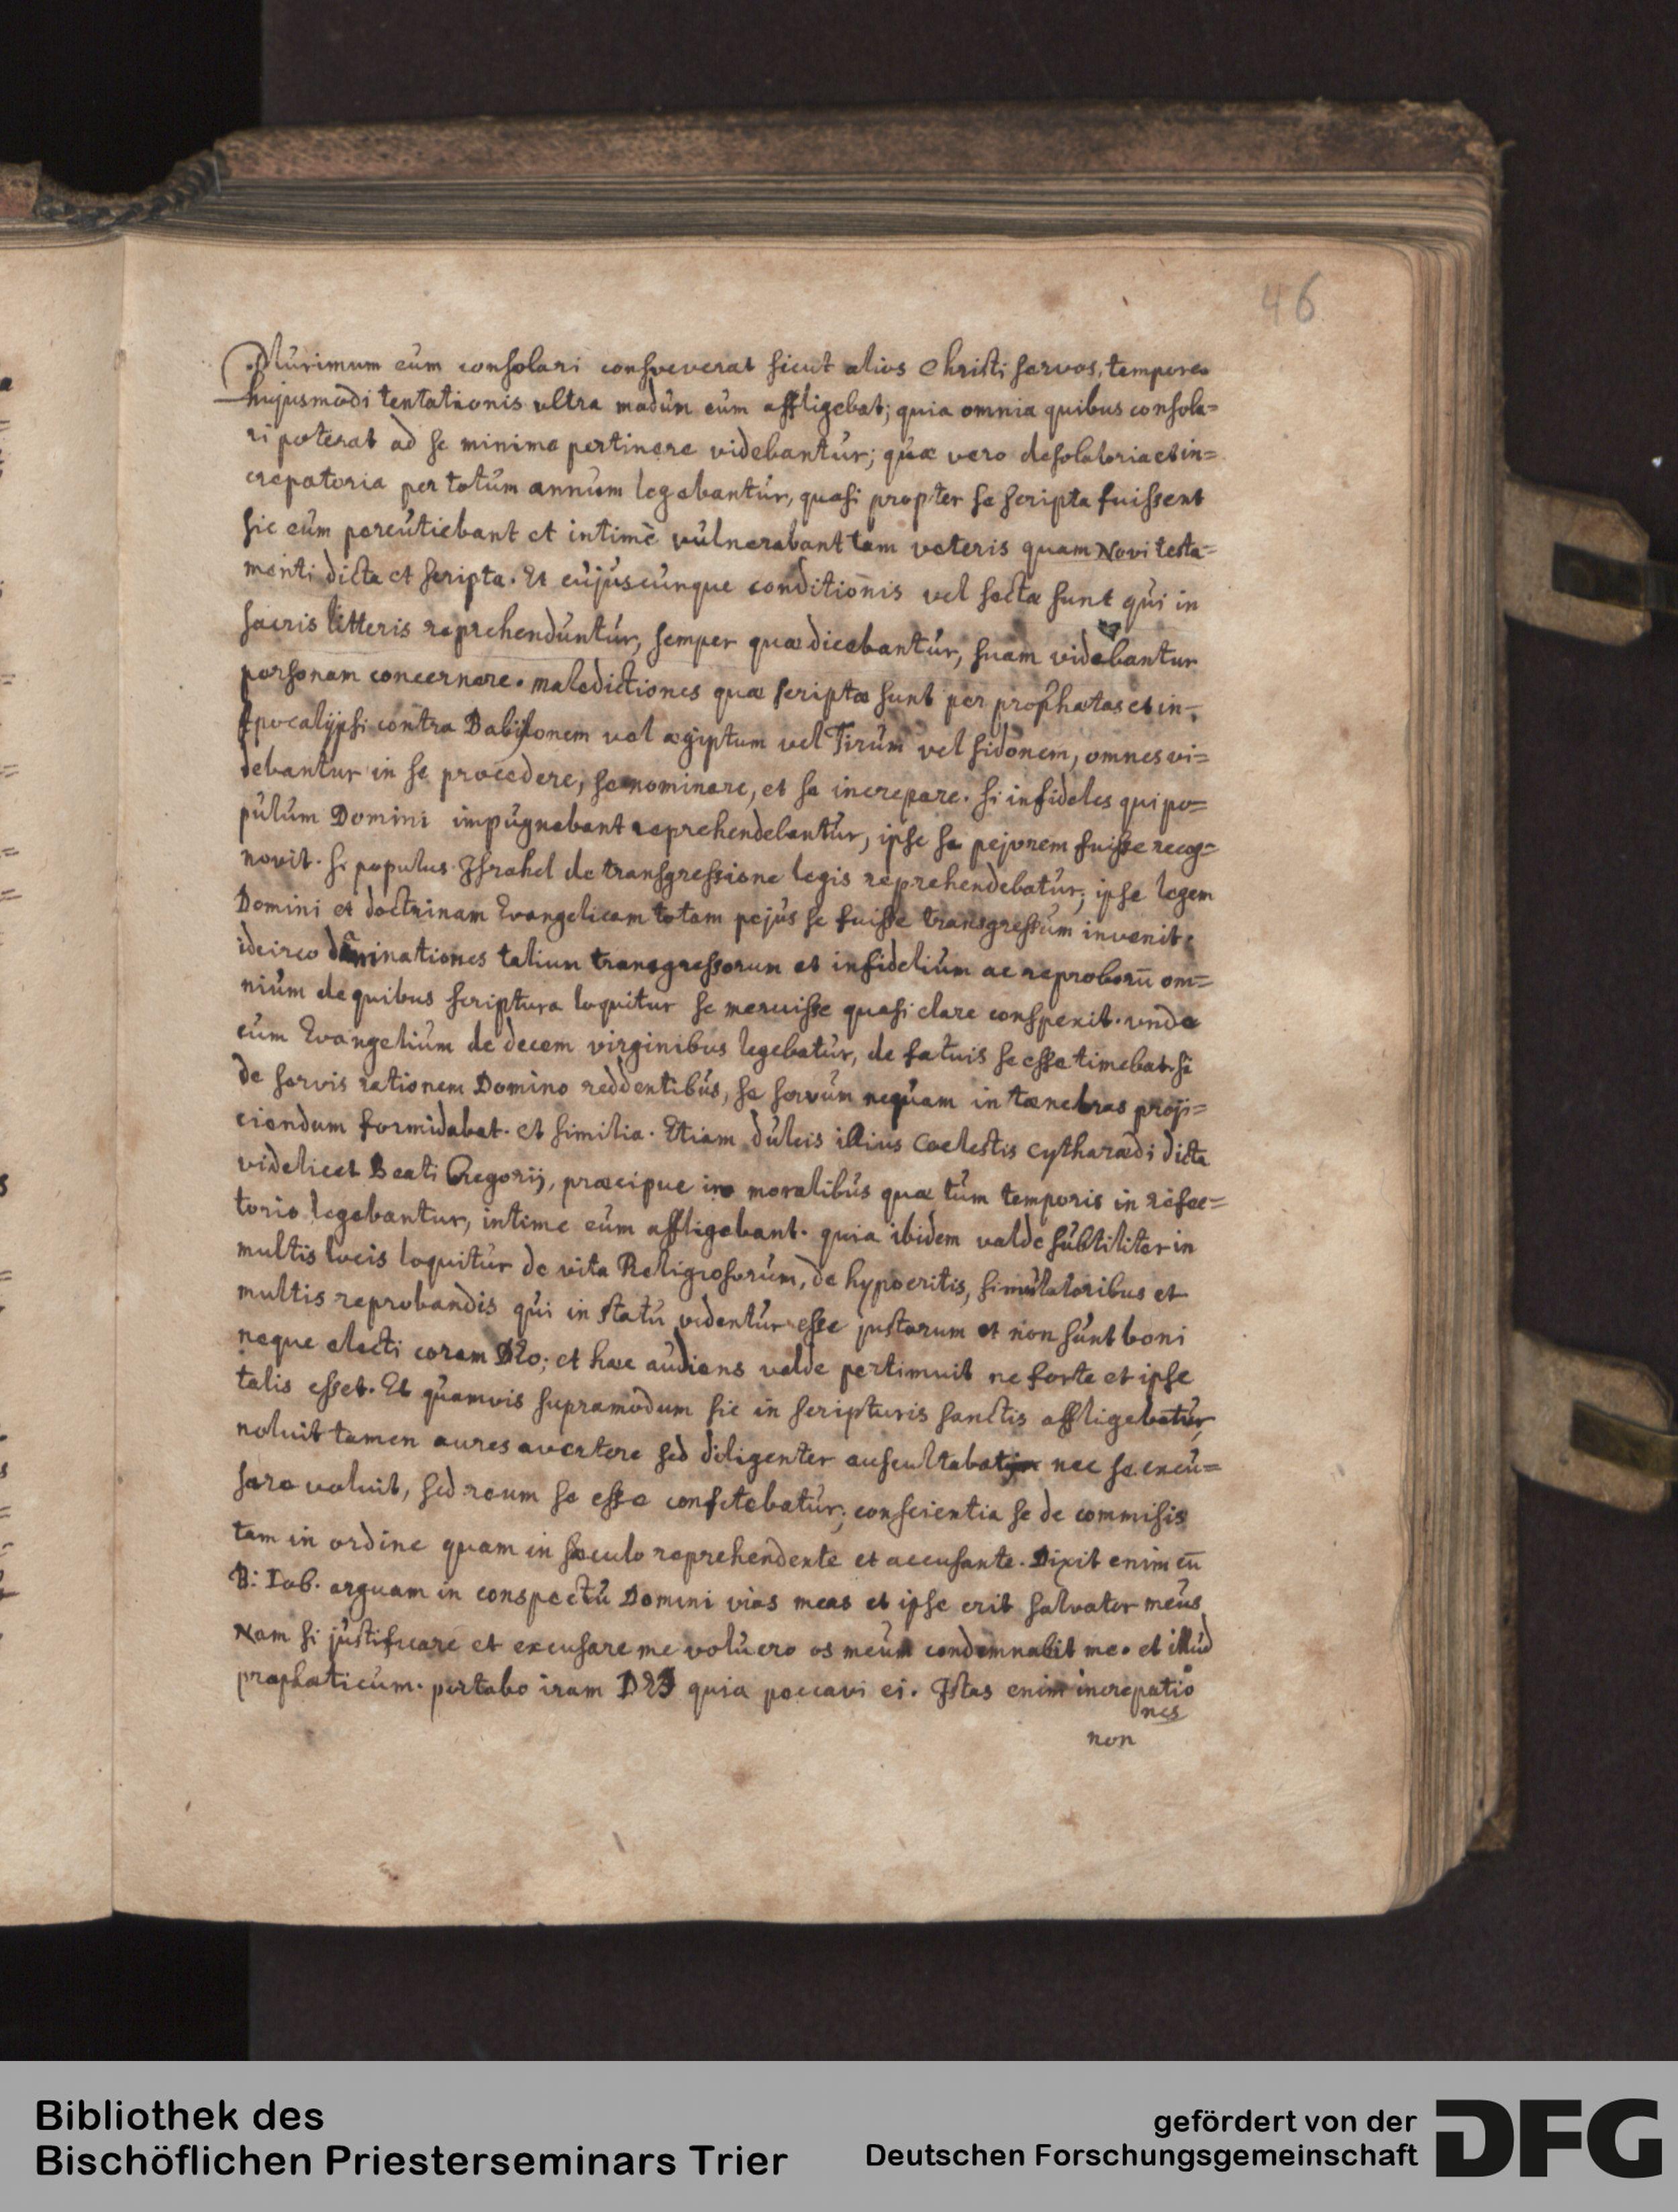 46
Plurimum eum consolari consveverat sicut alios Christi servos, tempore
hujusmodi tentationis ultra modum eum affligebat; quia omnia quibus consola=
ri poterat ad se minime pertinere videbantur; quæ vero desolatoria et in=
crepatoria per totum annum legebantur, quasi propter se scripta fuissent
sic eum percutiebant et intimè vulnerabant tam veteris quam Novi testa=
menti dicta et scripta. Et cujuscunque conditionis vel sectæ sunt qui in
sacris litteris reprehenduntur, semper quæ dicebantur, suam videbantur
personam concernere. maledictiones quæ scriptæ sunt per prophetas et in
Apocalÿpsi contra Babÿlonem vel ægiptum vel Tirum vel sidonem, omnes vi=
debantur in se procedere, se nominare, et se increpare. si infideles qui po=
pulum Domini impugnabant reprehendebantur, ipse se pejorem fuisse recog=
novit. si populus Israhel de transgressione legis reprehendebatur, ipse legem
Domini et doctrinam Evangelicam totam pejus se fuisse transgressum invenit.
idcirco dam̄inationes talium transgressorum et infidelium ac reproborū om=
nium de quibus scriptura loquitur se meruisse quasi clare conspexit. unde
cum Evangelium de decem virginibus legebatur, de fatuis se esse timebat. si
de servis rationem Domino reddentibus, se servum nequam in tænebras proji=
ciendum formidabat. et similia. Etiam dulcis illius Coelestis Cytharædi dicta
videlicet Beati Gregorij, præcipue in moralibus quæ tum temporis in refec=
torio legebantur, intime eum affligebant. quia ibidem valde subtiliter in
multis locis loquitur de vita Religiosorum, de hypocritis, simulatoribus et
multis reprobandis qui in statu videntur esse justorum et non sunt boni
neque electi coram Deo; et hæc audiens valde pertimuit ne forte et ipse
talis esset. Et quamvis supramodum sic in scripturis sanctis affligebatur,
noluit tamen aures avertere sed diligenter auscultabat nec se excu=
sare voluit, sed reum se esse confitebatur; conscientia se de commisis
tam in ordine quam in sæculo reprehendente et accusante. Dixit enim cū
B: Iob. arguam in conspectu Domini vias meas et ipse erit salvator meus
Nam si justificare et excusare me voluero os meum condemnabit me. et illud
propheticum. portabo iram DEI quia peccavi ei. Istas enim increpatio
nes
non
Bibliothek des
Bischöflichen Priesterseminars Trier
gefördert von der
Deutschen Forschungsgemeinschaft
DFG